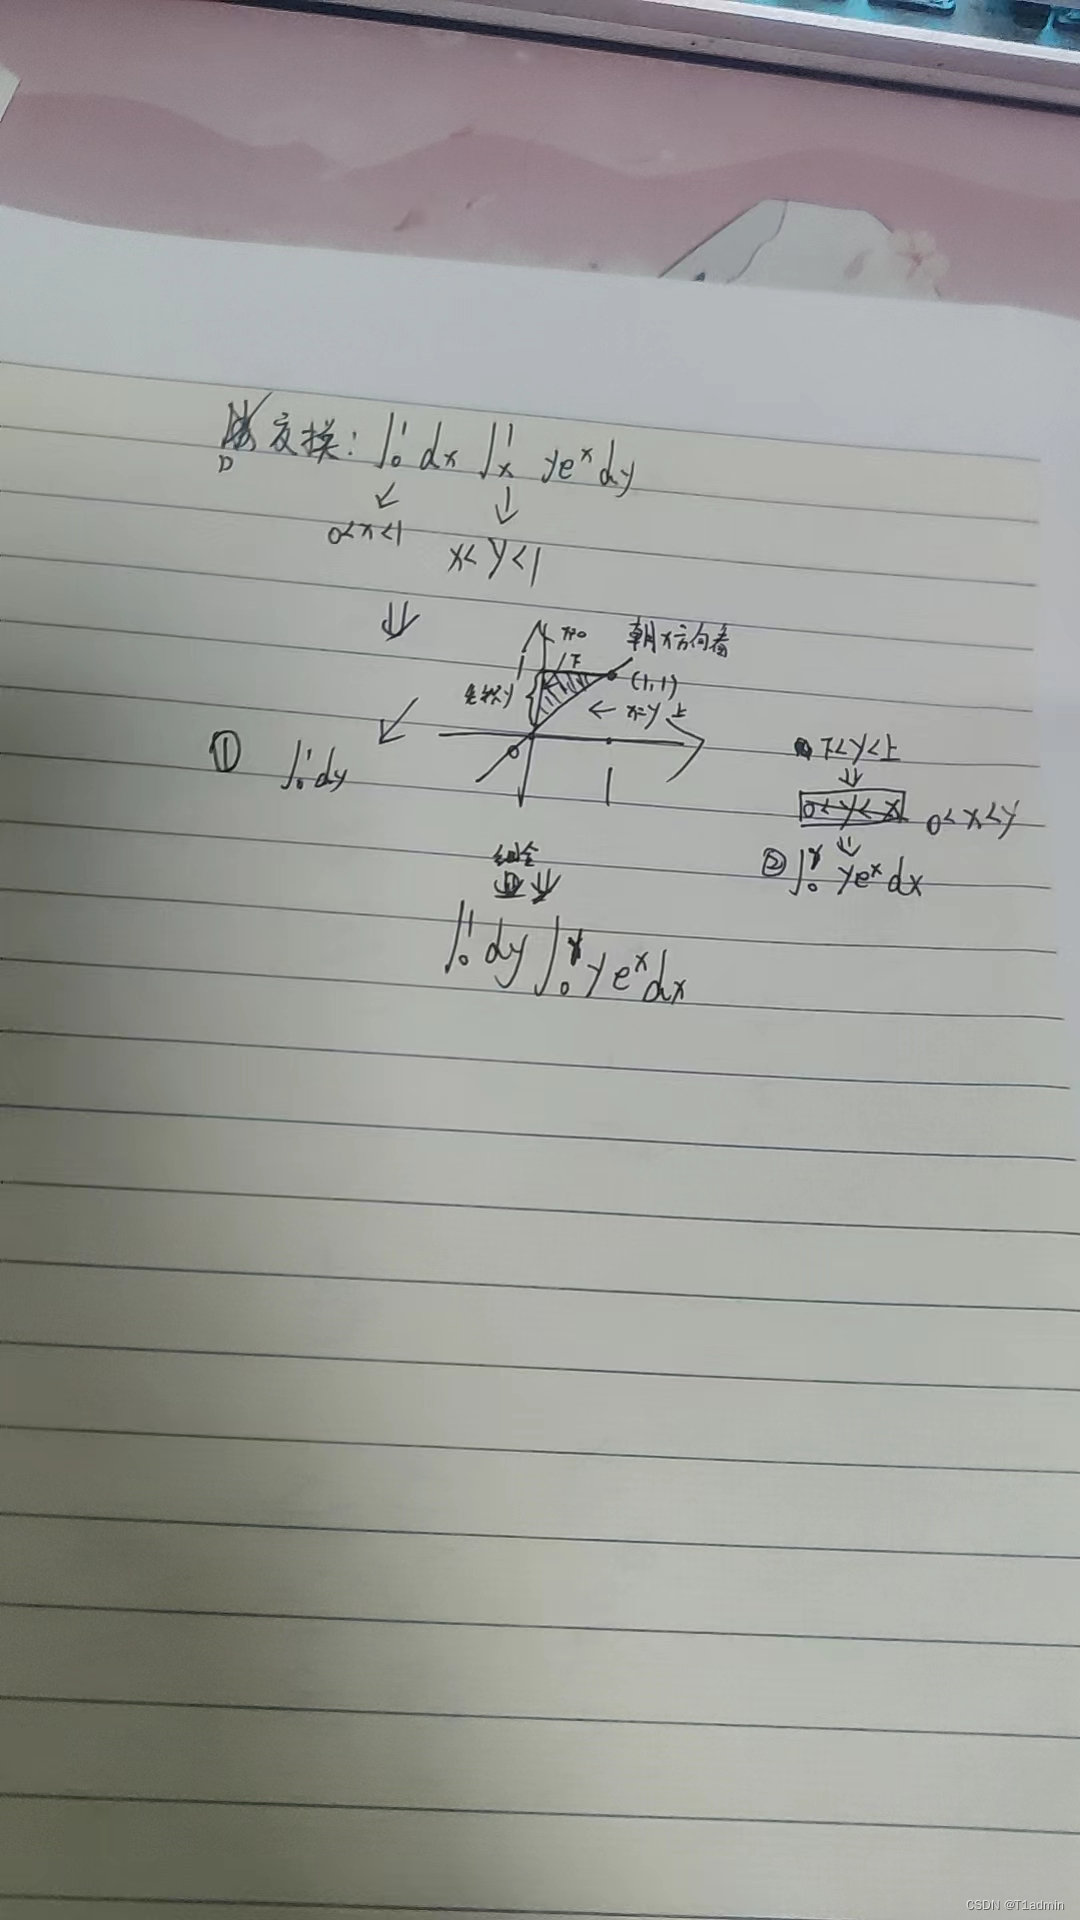 交换: ∫₀¹ dx ∫ₓ¹ yeˣdy
D
↙ ↓
0<x<1 x<y<1
⇓
x=0 朝x方向看
1 下
(1,1)
先积y ← x=y 上
0 1
① ∫₀¹dy
下<y<上
⇓
0<y<x 0<x<y
⇓
② ∫₀ʸ yeˣdx
组合
⇓
∫₀¹ dy ∫₀ʸ yeˣdx
CSDN @T1admin